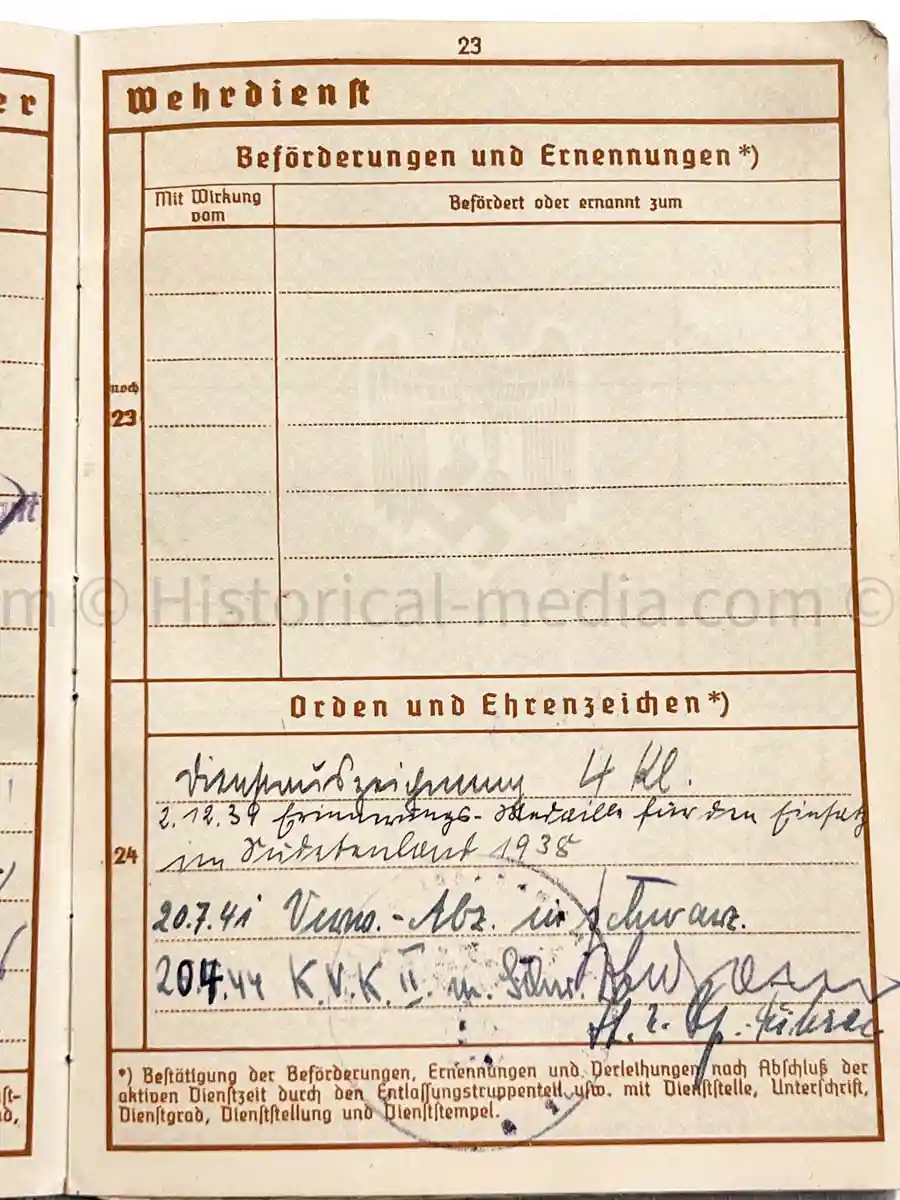 23
er
Wehrdienst
Beförderungen und Ernennungen *)
Mit Wirkung vom
Befördert oder ernannt zum
noch 23
© Historical-media.com ©
Orden und Ehrenzeichen *)
24
Dienstauszeichnung 4 Kl.
2.12.39 Erinnerungs-Medaille für den Einsatz
im Sudetenland 1938
20.7.41 Verw.-Abz. in schwarz.
20.4.44 K.V.K. II. m. Schw.
Lt. u. Kp.-Führer
*) Bestätigung der Beförderungen, Ernennungen und Verleihungen nach Abschluß der
aktiven Dienstzeit durch den Entlassungstruppenteil usw. mit Dienststelle, Unterschrift,
Dienstgrad, Dienststellung und Dienststempel.